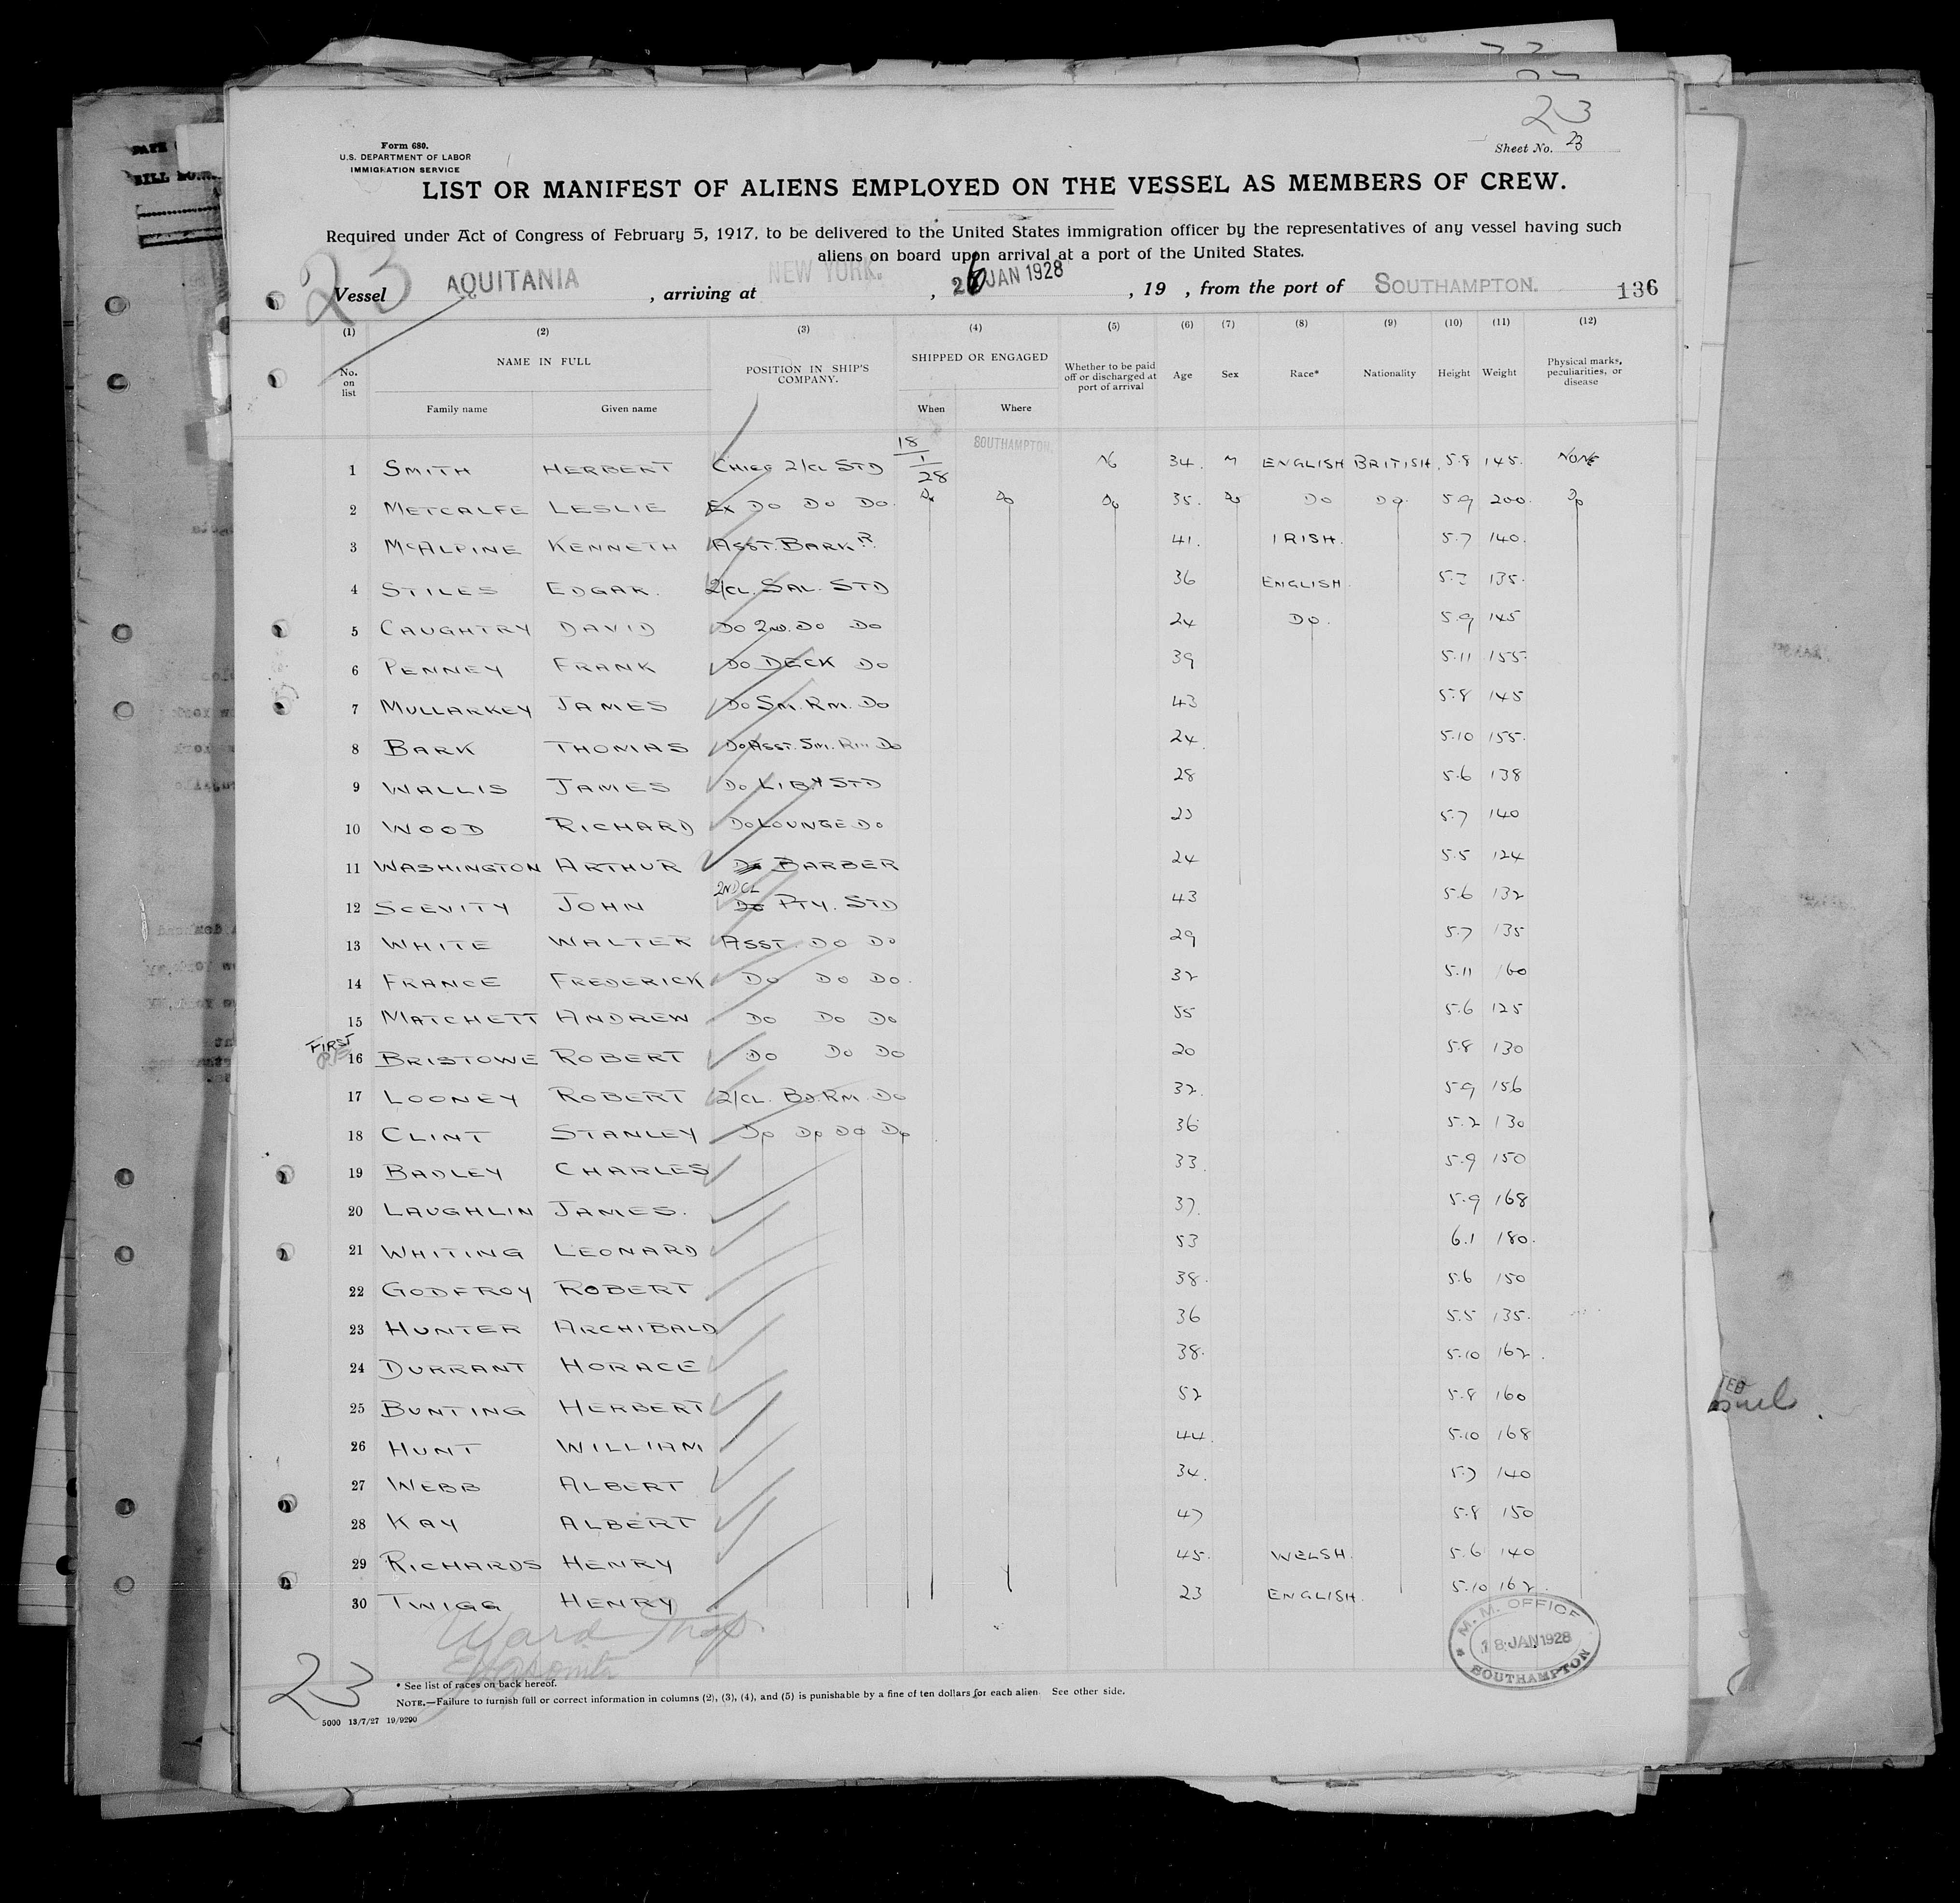 23
Form 680.
U.S. DEPARTMENT OF LABOR
IMMIGRATION SERVICE
Sheet No. 23
LIST OR MANIFEST OF ALIENS EMPLOYED ON THE VESSEL AS MEMBERS OF CREW.
Required under Act of Congress of February 5, 1917, to be delivered to the United States immigration officer by the representatives of any vessel having such
aliens on board upon arrival at a port of the United States.
23
Vessel AQUITANIA, arriving at NEW YORK., 26 JAN 1928, 19 , from the port of SOUTHAMPTON. 136
(1) (2) (3) (4) (5) (6) (7) (8) (9) (10) (11) (12)
No. on list NAME IN FULL POSITION IN SHIP'S COMPANY. SHIPPED OR ENGAGED Whether to be paid off or discharged at port of arrival Age Sex Race* Nationality Height Weight Physical marks, peculiarities, or disease
Family name Given name When Where
1 SMITH HERBERT CHIEF 2/CL STD 18/1/28 SOUTHAMPTON No 34. M ENGLISH BRITISH. 5.8 145. NONE
2 METCALFE LESLIE EX DO DO DO. Do Do Do 35. Do DO DO. 5.9 200. Do
3 McALPINE KENNETH ASST. BARKR. 41. IRISH. 5.7 140.
4 STILES EDGAR. 2/CL. SAL. STD 36 ENGLISH. 5.3 135.
5 CAUGHTRY DAVID DO 2ND. DO DO 24 DO. 5.9 145
6 PENNEY FRANK DO DECK DO 39 5.11 155.
7 MULLARKEY JAMES DO SM. RM. DO 43 5.8 145
8 BARK THOMAS DO ASST. SM. RM DO 24. 5.10 155.
9 WALLIS JAMES DO LIBY STD 28 5.6 138
10 WOOD RICHARD DO LOUNGE DO 23 5.7 140
11 WASHINGTON ARTHUR DO BARBER 24 5.5 124
12 SCEVITY JOHN 2ND CL DO PTY. STD 43 5.6 132
13 WHITE WALTER ASST. DO DO 29 5.7 135
14 FRANCE FREDERICK DO DO DO. 32 5.11 160
15 MATCHETT ANDREW DO DO DO 55 5.6 125
FIRST
16 BRISTOWE ROBERT DO DO DO 20 5.8 130
17 LOONEY ROBERT 2/CL. BD. RM. DO 32. 5.9 156
18 CLINT STANLEY DO DO DO DO 36 5.2 130
19 BADLEY CHARLES 33. 5.9 150
20 LAUGHLIN JAMES. 37. 5.9 168
21 WHITING LEONARD 53 6.1 180.
22 GODFROY ROBERT 38. 5.6 150
23 HUNTER ARCHIBALD 36 5.5 135.
24 DURRANT HORACE 38. 5.10 162.
25 BUNTING HERBERT 52 5.8 160
26 HUNT WILLIAM 44. 5.10 168
27 WEBB ALBERT 34. 5.7 140
28 KAY ALBERT 47 5.8 150
29 RICHARDS HENRY 45. WELSH. 5.6 140
30 TWIGG HENRY 23 ENGLISH. 5.10 162.
Ward
M. M. OFFICE
18 JAN 1928
SOUTHAMPTON
23
* See list of races on back hereof.
NOTE.—Failure to furnish full or correct information in columns (2), (3), (4), and (5) is punishable by a fine of ten dollars for each alien. See other side.
5000 13/7/27 19/9290